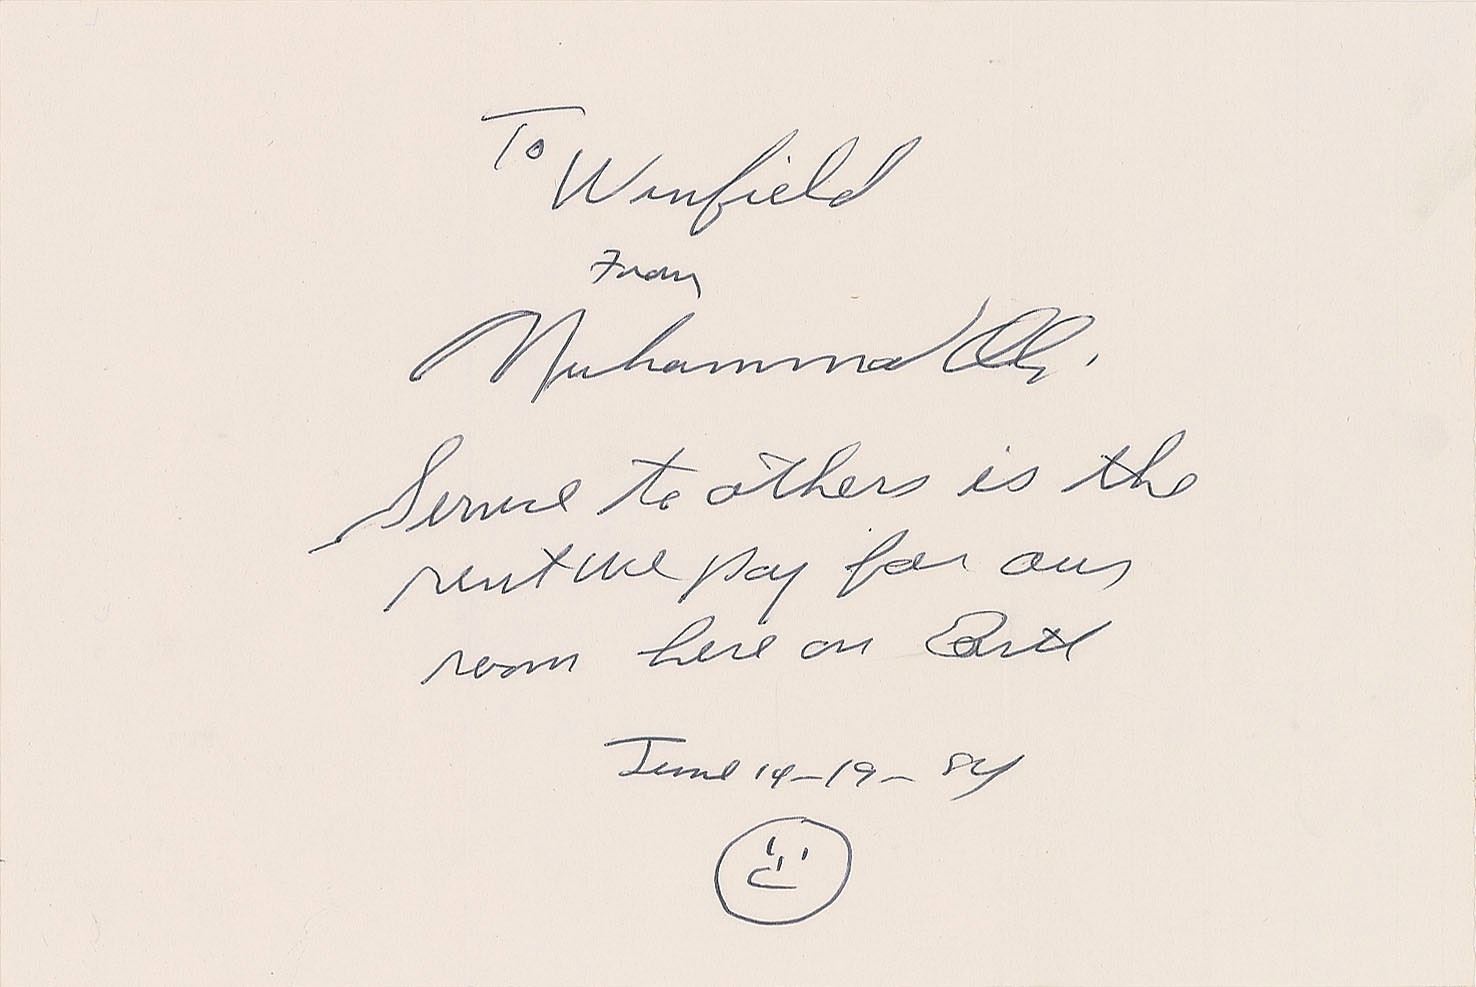 To
Winfield
From
Muhammad Ali.
Service to others is the
rent we pay for our
room here on Earth
June 14-19-84